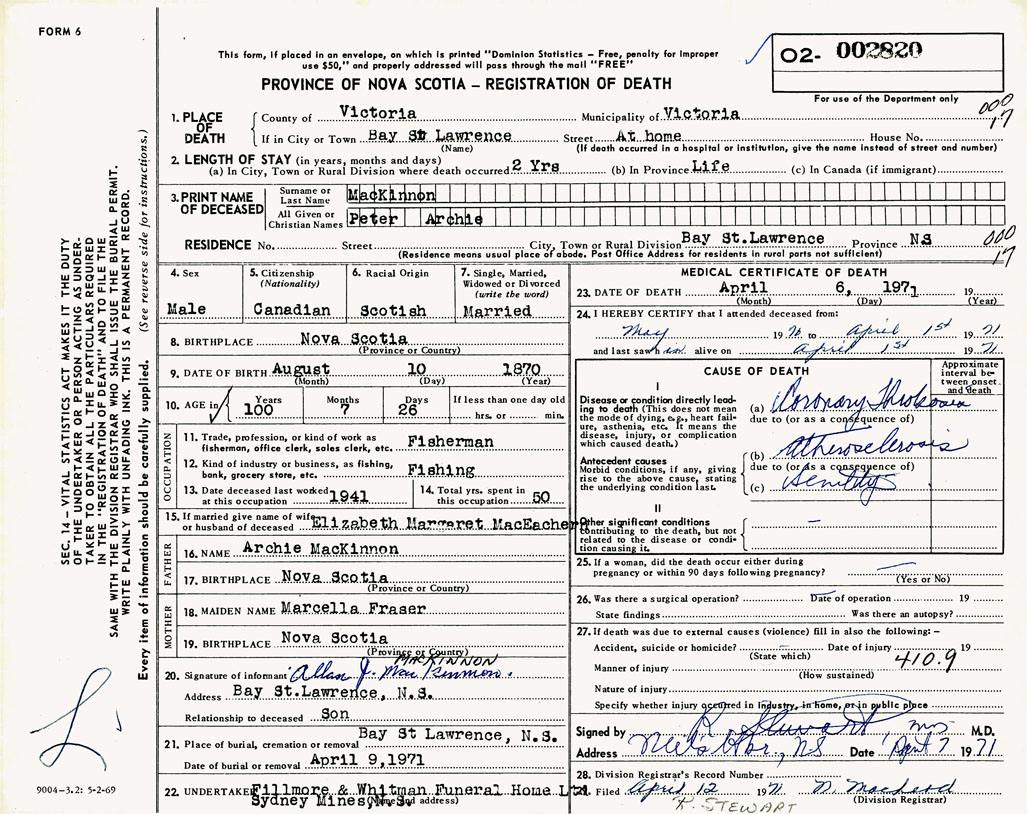 FORM 6
This form, if placed in an envelope, on which is printed "Dominion Statistics – Free, penalty for improper
use $50," and properly addressed will pass through the mail "FREE"
PROVINCE OF NOVA SCOTIA – REGISTRATION OF DEATH
O2- 002820
For use of the Department only
000
17
1. PLACE OF DEATH
County of Victoria Municipality of Victoria
If in City or Town Bay St Lawrence Street At home House No.
(Name) (If death occurred in a hospital or institution, give the name instead of street and number)
2. LENGTH OF STAY (in years, months and days)
(a) In City, Town or Rural Division where death occurred 2 Yrs (b) In Province Life (c) In Canada (if immigrant)
3. PRINT NAME OF DECEASED
Surname or Last Name MacKinnon
All Given or Christian Names Peter Archie
RESIDENCE No. Street City, Town or Rural Division Bay St.Lawrence Province NS
000
17
(Residence means usual place of abode. Post Office Address for residents in rural parts not sufficient)
4. Sex
Male
5. Citizenship (Nationality)
Canadian
6. Racial Origin
Scotish
7. Single, Married, Widowed or Divorced (write the word)
Married
8. BIRTHPLACE Nova Scotia
(Province or Country)
9. DATE OF BIRTH August 10 1870
(Month) (Day) (Year)
10. AGE in Years Months Days If less than one day old
100 7 26 hrs. or min.
OCCUPATION
11. Trade, profession, or kind of work as
fisherman, office clerk, sales clerk, etc. Fisherman
12. Kind of industry or business, as fishing,
bank, grocery store, etc. Fishing
13. Date deceased last worked at this occupation 1941
14. Total yrs. spent in this occupation 50
15. If married give name of wife
or husband of deceased Elizabeth Margaret MacEachern
FATHER
16. NAME Archie MacKinnon
17. BIRTHPLACE Nova Scotia
(Province or Country)
MOTHER
18. MAIDEN NAME Marcella Fraser
19. BIRTHPLACE Nova Scotia
(Province or Country)
MACKINNON
20. Signature of informant Allan J. MacKinnon.
Address Bay St.Lawrence, N.S.
Relationship to deceased Son
21. Place of burial, cremation or removal Bay St Lawrence, N.S.
Date of burial or removal April 9,1971
22. UNDERTAKER Fillmore & Whitman Funeral Home Ltd.
Sydney Mines, N.S.
(Name and address)
MEDICAL CERTIFICATE OF DEATH
23. DATE OF DEATH April 6, 1971 19
(Month) (Day) (Year)
24. I HEREBY CERTIFY that I attended deceased from:
May 1970 to April 1st 1971
and last saw him alive on April 1st 1971
CAUSE OF DEATH
Approximate interval between onset and death
I
Disease or condition directly leading
to death (This does not mean
the mode of dying, e.g., heart failure,
asthenia, etc. It means the
disease, injury, or complication
which caused death.)
(a) Coronary Thrombosis
due to (or as a consequence of)
Antecedent causes
Morbid conditions, if any, giving
rise to the above cause, stating
the underlying condition last.
(b) Atherosclerosis
due to (or as a consequence of)
(c) Senility
II
Other significant conditions
contributing to the death, but not
related to the disease or condition
causing it. –
25. If a woman, did the death occur either during
pregnancy or within 90 days following pregnancy? –
(Yes or No)
26. Was there a surgical operation? Date of operation 19
State findings Was there an autopsy?
27. If death was due to external causes (violence) fill in also the following: –
Accident, suicide or homicide? – Date of injury 19
(State which)
Manner of injury 410.9
(How sustained)
Nature of injury
Specify whether injury occurred in Industry, in home, or in public place
Signed by R Stewart MD M.D.
Address Neil's Hbr., NS Date April 7 1971
28. Division Registrar's Record Number
Filed April 12 1971 MacLeod
(Division Registrar)
R. STEWART
SEC. 14 – VITAL STATISTICS ACT MAKES IT THE DUTY
OF THE UNDERTAKER OR PERSON ACTING AS UNDERTAKER
TO OBTAIN ALL THE PARTICULARS REQUIRED
IN THE "REGISTRATION OF DEATH" AND TO FILE THE
SAME WITH THE DIVISION REGISTRAR WHO SHALL ISSUE THE BURIAL PERMIT.
WRITE PLAINLY WITH UNFADING INK. THIS IS A PERMANENT RECORD.
Every item of information should be carefully supplied. (See reverse side for instructions.)
9004-3.2: 5-2-69